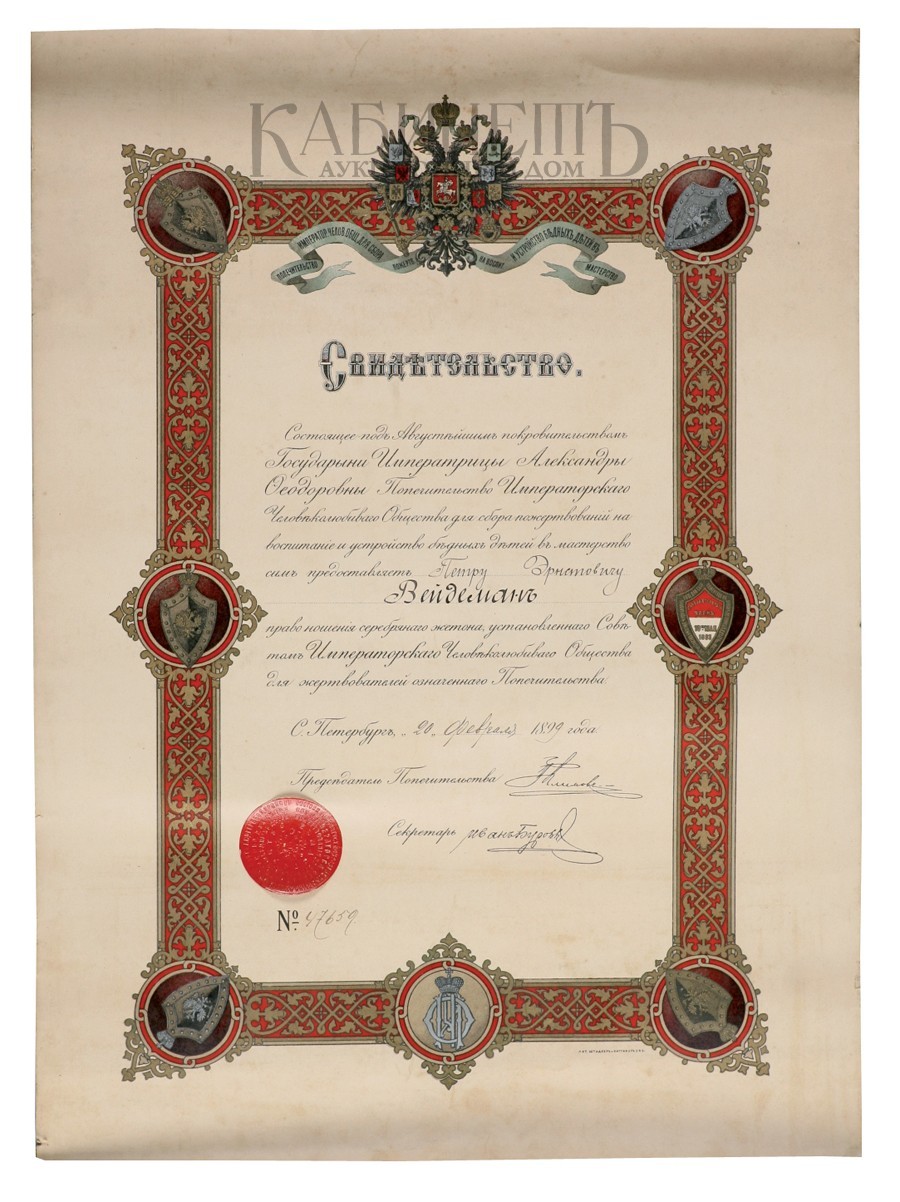 КАБИНЕТЪ
АУКЦИОННЫЙ ДОМ
ПОПЕЧИТЕЛЬСТВО ИМПЕРАТОР. ЧЕЛОВ. ОБЩ. ДЛЯ СБОРА ПОЖЕРТВ. НА ВОСПИТ. И УСТРОЙСТВО БѢДНЫХЪ ДѢТЕЙ ВЪ МАСТЕРСТВО
Свидѣтельство.
Состоящее подъ Августѣйшимъ покровительствомъ
Государыни Императрицы Александры
Ѳеодоровны Попечительство Императорскаго
Человѣколюбиваго Общества для сбора пожертвованій на
воспитаніе и устройство бѣдныхъ дѣтей въ мастерство
симъ предоставляетъ Петру Эрнстовичу
Вейдеманъ
право ношенія серебрянаго жетона, установленнаго Совѣ-
томъ Императорскаго Человѣколюбиваго Общества
для жертвователей означеннаго Попечительства.
С. Петербургъ, „20„ Февраля 1899 года.
Предсѣдатель Попечительства
Секретарь Иванъ
№ 47659
1892